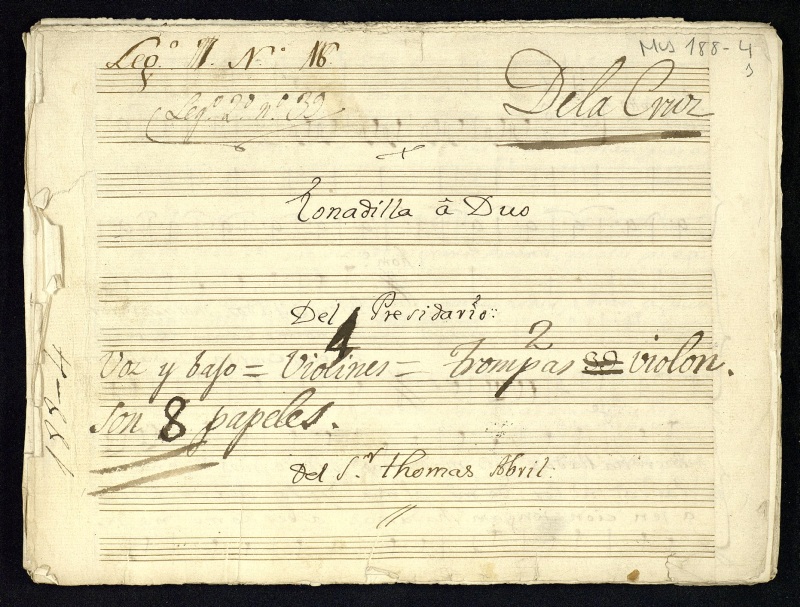 Leg.º II. N.º 16.
Mus 188-4
Leg.º 2º n.º 39
De la Cruz
Tonadilla â Duo
Del Presidario:
4 2
Voz y bajo = Violines = trompas violon.
Son 8 papeles.
Del S.r thomas Abril.
188-4